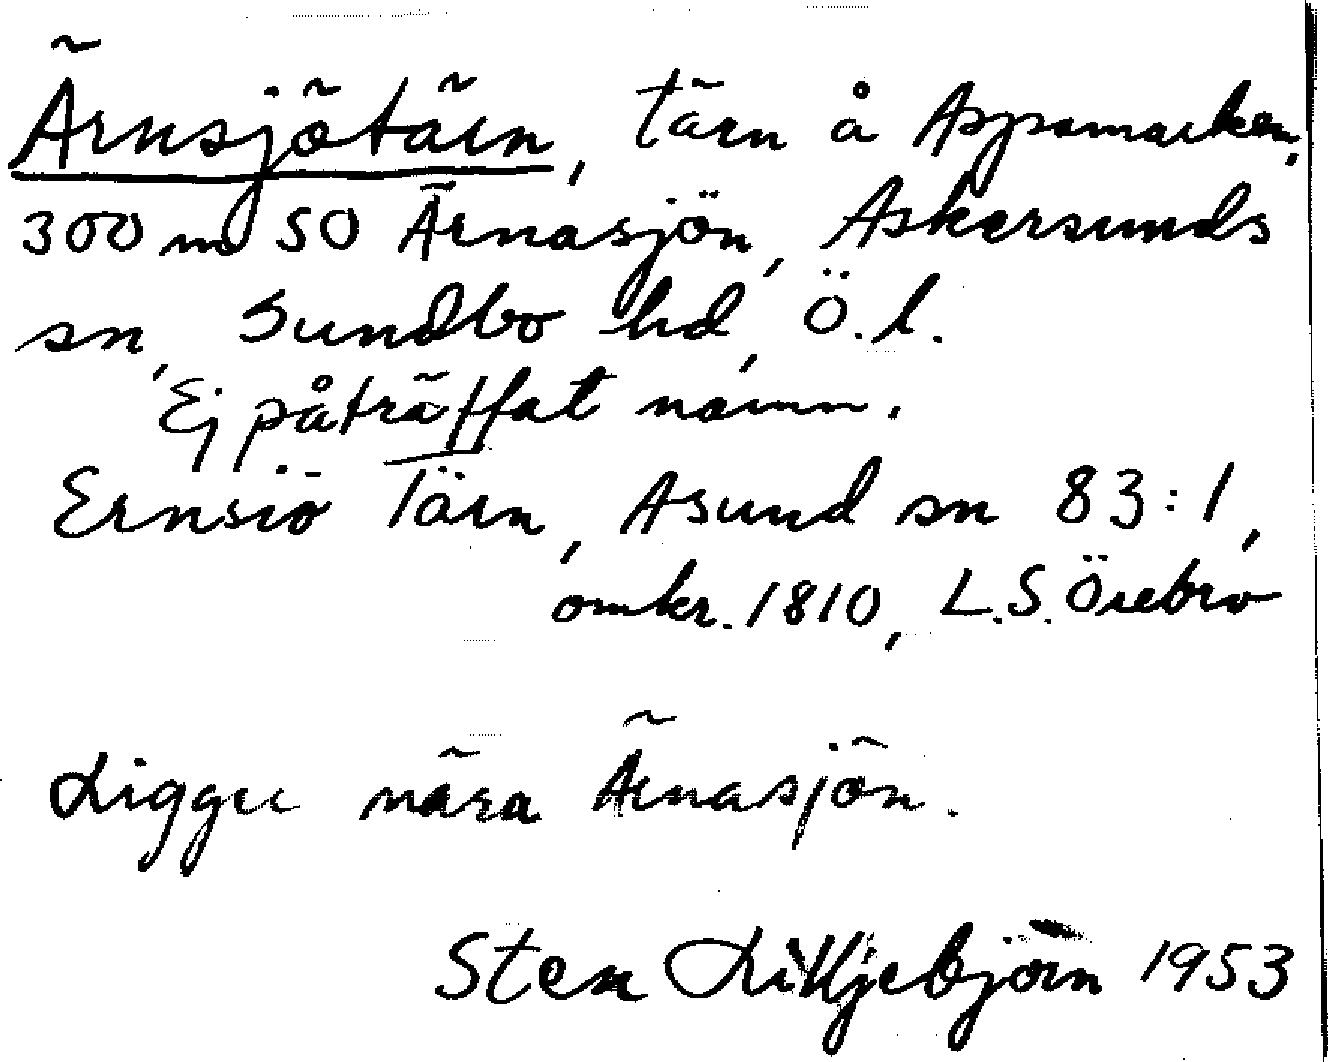 Ärnsjötärn, tärn å Aspamarken,
300 m SO Ärnasjön, Askersunds
sn, Sundbo hd, Ö.l.
Ej påträffat namn.
Ernsiö Tärn, Asund sn 83:1,
omkr. 1810, L.S. Örebro
Ligger nära Ärnasjön.
Sten Lilljebjörn 1953